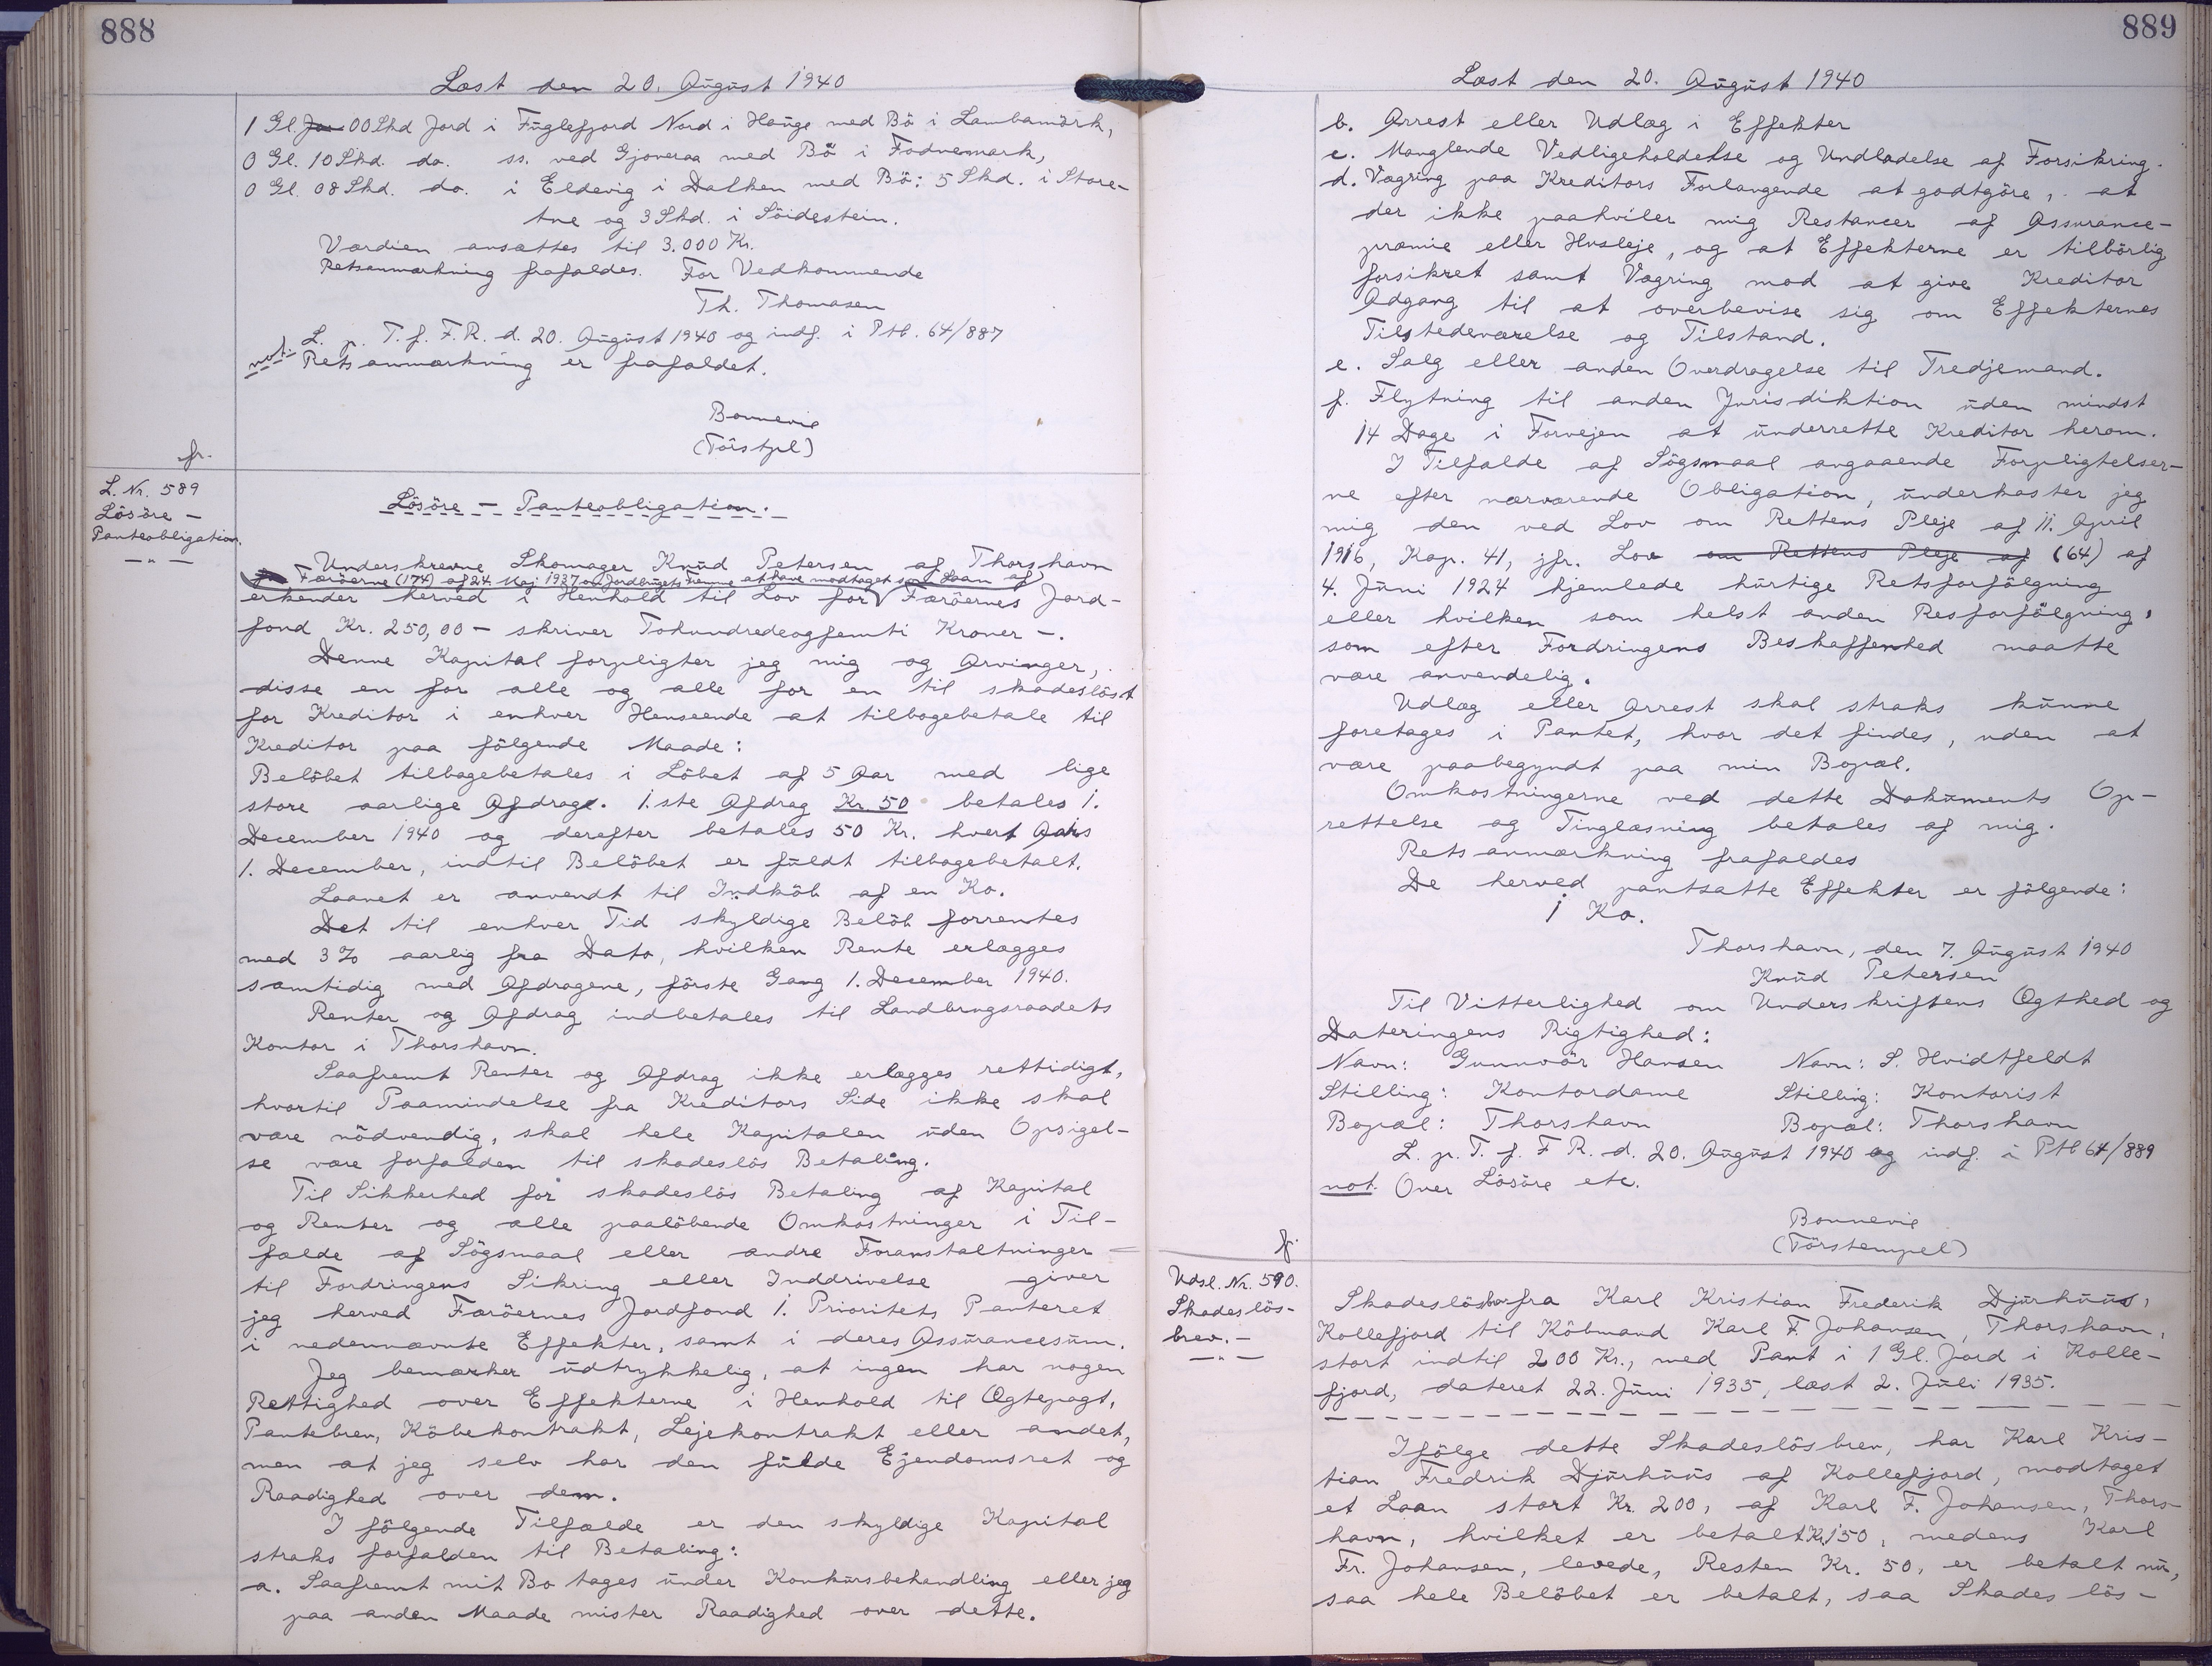 888
Læst den 20. August 1940
1 Gl. Jor 00 Skd Jord i Fuglefjord Nord i Hauge med Bö i Lambamörk,
0 Gl. 10 Skd. do. ss. ved Gjoveraa med Bö i Fodnemark,
0 Gl. 08 Skd. do. i Eldevig i Dalken med Bö: 5 Skd. i Store-
tne og 3 Skd. i Söidestein.
Værdien ansættes til 3.000 Kr.
Retsanmærkning frafaldes. For Vedkommende
Th. Thomasen
L. p. T. f. F. R. d. 20. August 1940 og indf. i Ptb. 64/887
not: Retsanmærkning er frafaldet.
Bonnevie
(Törstpl)
fr.
L. Nr. 589
Lösöre -
Panteobligation.
— „ —
Lösöre - Panteobligation.
Underskrevne Skomager Knud Petersen af Thorshavn
Færöerne (174) af 24. Maj 1937 om Jordbrugets Fremme at have modtaget som Laan af
erkender herved i Henhold til Lov for Færöernes Jord-
fond Kr. 250,00 - skriver Tohundredeogfemti Kroner -.
Denne Kapital forpligter jeg mig og Arvinger,
disse en for alle og alle for en til skadeslöst
for Kreditor i enhver Henseende at tilbagebetale til
Kreditor paa fölgende Maade:
Belöbet tilbagebetales i Löbet af 5 Aar med lige
store aarlige Afdrage. 1.ste Afdrag Kr. 50 betales 1.
December 1940 og derefter betales 50 Kr. hvert Aars
1. December, indtil Belöbet er fuldt tilbagebetalt.
Laanet er anvendt til Indköb af en Ko.
Det til enhver Tid skyldige Belöb forrentes
med 3% aarlig fra Dato, hvilken Rente erlægges
samtidig med Afdragene, förste Gang 1. December 1940.
Renter og Afdrag indbetales til Landbrugsraadets
Kontor i Thorshavn.
Saafremt Renter og Afdrag ikke erlægges rettidigt,
hvortil Paamindelse fra Kreditors Side ikke skal
være nödvendig, skal hele Kapitalen uden Opsigel-
se være forfalden til skadeslös Betaling.
Til Sikkerhed for skadeslös Betaling af Kapital
og Renter og alle paalöbende Omkostninger i Til-
fælde af Sögsmaal eller andre Foranstaltninger
til Fordringens Sikring eller Inddrivelse giver
jeg herved Færöernes Jordfond 1. Prioritets Panteret
i nedennævnte Effekter, samt i deres Assurancesum.
Jeg bemærker udtrykkelig, at ingen har nogen
Rettighed over Effekterne i Henhold til Ægtepagt,
Pantebrev, Köbekontrakt, Lejekontrakt eller andet,
men at jeg selv har den fulde Ejendomsret og
Raadighed over dem.
I fölgende Tilfælde er den skyldige Kapital
straks forfalden til Betaling:
a. Saafremt mit Bo tages under Konkursbehandling eller jeg
paa anden Maade mister Raadighed over dette.
889
Læst den 20. August 1940
b. Arrest eller Udlæg i Effekter
c. Manglende Vedligeholdelse og Undladelse af Forsikring.
d. Vægring paa Kreditors Forlangende at godtgöre, at
der ikke paahviler mig Restancer af Assurance-
præmie eller Husleje, og at Effekterne er tilbörlig
forsikret samt Vægring mod at give Kreditor
Adgang til at overbevise sig om Effekternes
Tilstedeværelse og Tilstand.
e. Salg eller anden Overdragelse til Tredjemand.
f. Flytning til anden Jurisdiktion uden mindst
14 Dage i Forvejen at underrette Kreditor herom.
I Tilfælde af Sögsmaal angaaende Forpligtelser-
ne efter nærværende Obligation, underkaster jeg
mig den ved Lov om Rettens Pleje af 11. April
1916, Kap. 41, jfr. Lov om Rettens Pleje af (64) af
4. Juni 1924 hjemlede hurtige Retsforfölgning
eller hvilken som helst anden Resforfölgning,
som efter Fordringens Beskaffenhed maatte
være anvendelig.
Udlæg eller Arrest skal straks kunne
foretages i Pantet, hvor det findes, uden at
være paabegyndt paa min Bopæl.
Omkostningerne ved dette Dokuments Op-
rettelse og Tinglæsning betales af mig.
Retsanmærkning frafaldes
De herved pantsatte Effekter er fölgende:
1 Ko.
Thorshavn, den 7. August 1940
Knud Petersen
Til Vitterlighed om Underskriftens Ægthed og
Dateringens Rigtighed:
Navn: Gunnvör Hansen Navn: S. Hvidtfeldt
Stilling: Kontordame Stilling: Kontorist
Bopæl: Thorshavn Bopæl: Thorshavn
L. p. T. f. F R. d. 20. August 1940 og indf. i Ptb 64/889
not. Over Lösöre etc.
Bonnevie
(Törstempel)
fr.
Udsl. Nr. 590.
Skadeslös-
brev. -
— „ —
Skadeslösbrev fra Karl Kristian Frederik Djurhuus,
Kollefjord til Köbmand Karl F. Johansen, Thorshavn,
stort indtil 200 Kr., med Pant i 1 Gl. Jord i Kolle-
fjord, dateret 22. Juni 1935, læst 2. Juli 1935.
Ifölge dette Skadeslösbrev, har Karl Kris-
tian Fredrik Djurhuus af Kollefjord, modtaget
et Laan stort Kr. 200, af Karl F. Johansen, Thors-
havn, hvilket er betalt Kr. 150, medens Karl
Fr. Johansen, levede, Resten Kr. 50, er betalt nu,
saa hele Belöbet er betalt, saa Skades lös-